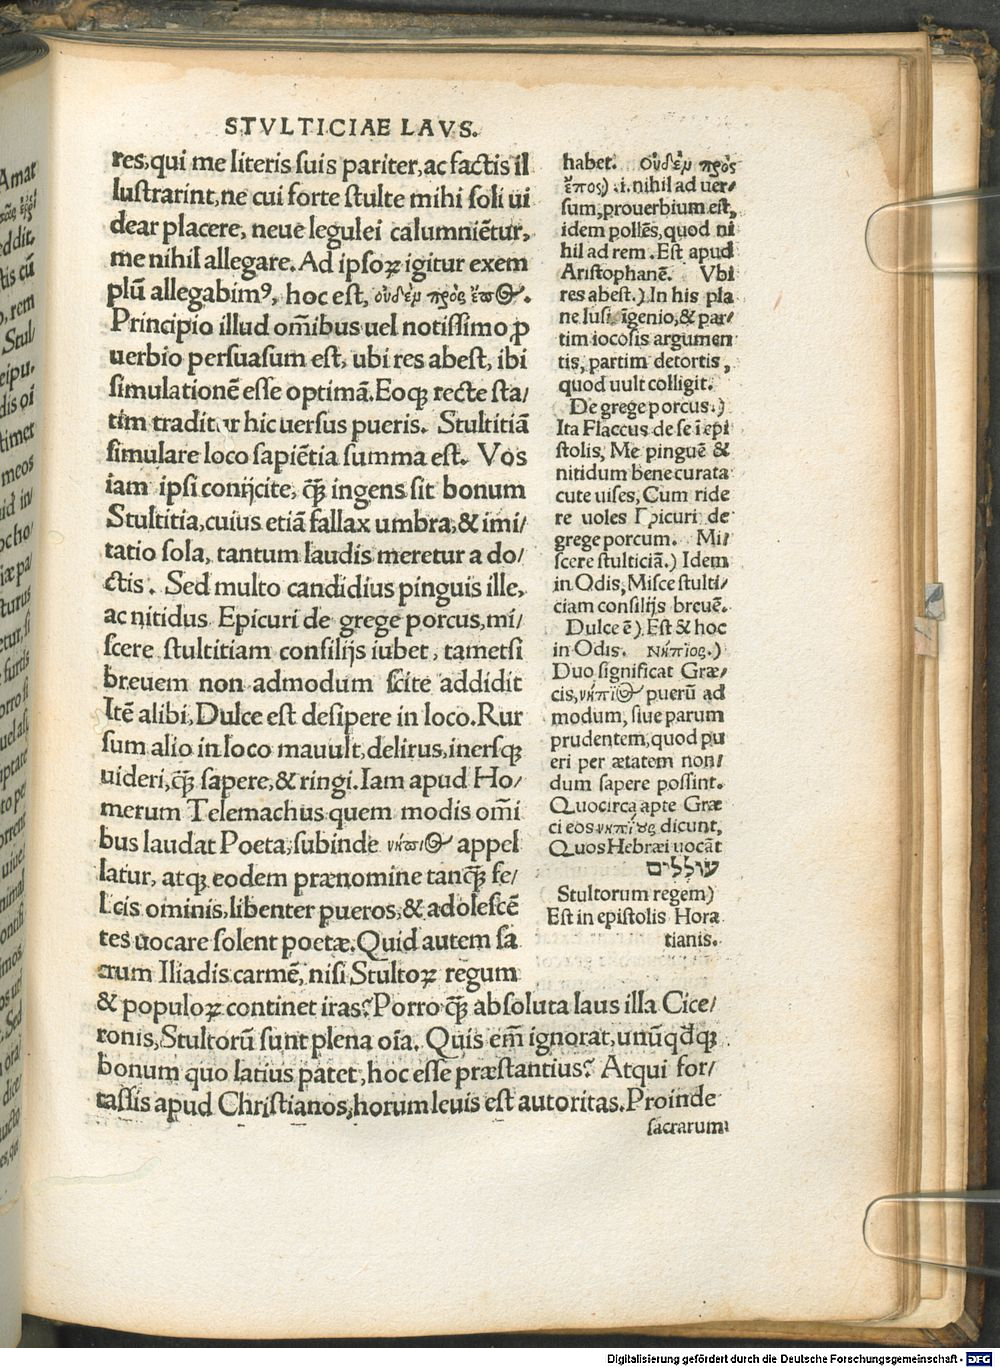 STVLTICIAE LAVS.
res, qui me literis suis pariter, ac factis il
lustrarint, ne cui forte stulte mihi soli ui
dear placere, neue legulei calumniẽtur,
me nihil allegare. Ad ipsoꝝ igitur exem
plũ allegabimꝰ, hoc est, οὐδὲν πρὸς ἔπος.
Principio illud om̃ibus uel notissimo ꝓ
uerbio persuasum est, ubi res abest, ibi
simulationẽ esse optimã. Eoqꝫ recte sta/
tim traditur hic uersus pueris. Stultitiã
simulare loco sapiẽtia summa est. Vos
iam ipsi conijcite, qꝫ̃ ingens sit bonum
Stultitia, cuius etiã fallax umbra, & imi/
tatio sola, tantum laudis meretur a do/
ctis. Sed multo candidius pinguis ille,
ac nitidus Epicuri de grege porcus, mi/
scere stultitiam consilijs iubet, tametsi
breuem non admodum scite addidit
Itẽ alibi, Dulce est desipere in loco. Rur
sum alio in loco mauult, delirus, inersqꝫ
uideri, qꝫ̃ sapere, & ringi. Iam apud Ho/
merum Telemachus quem modis om̃i
bus laudat Poeta, subinde νήπιος appel
latur, atqꝫ eodem prænomine tanqꝫ̃ fe/
lcis ominis, libenter pueros, & adolescẽ
tes uocare solent poetæ. Quid autem sa
crum Iliadis carmẽ, nisi Stultoꝝ regum
& populoꝝ continet iras? Porro qꝫ̃ absoluta laus illa Cice/
ronis, Stultorũ sunt plena oĩa. Quis em̃ ignorat, unũqdqꝫ
bonum quo latius patet, hoc esse præstantius? Atqui for/
tassis apud Christianos, horum leuis est autoritas. Proinde
sacrarum
habet. Οὐδὲν πρὸς
ἔπος) .i. nihil ad uer/
sum, prouerbium est,
idem pollẽs, quod ni
hil ad rem. Est apud
Aristophanẽ. Vbi
res abest.) In his pla
ne lusi. ĩgenio, & par/
tim iocosis argumen
tis, partim detortis,
quod uult colligit.
De grege porcus.)
Ita Flaccus de se ĩ epi
stolis, Me pinguẽ &
nitidum bene curata
cute uises, Cum ride
re uoles Epicuri de
grege porcum. Mi/
scere stulticiã.) Idem
in Odis, Misce stulti/
ciam consilijs breuẽ.
Dulce ẽ) Est & hoc
in Odis. νήπιος.)
Duo significat Græ/
cis, νήπιος puerũ ad
modum, siue parum
prudentem, quod pu
eri per ætatem non/
dum sapere possint.
Quocirca apte Græ
ci eos νηπίους dicunt,
Quos Hebræi uocãt
עוללים
Stultorum regem)
Est in epistolis Hora
tianis.
Digitalisierung gefördert durch die Deutsche Forschungsgemeinschaft - DFG